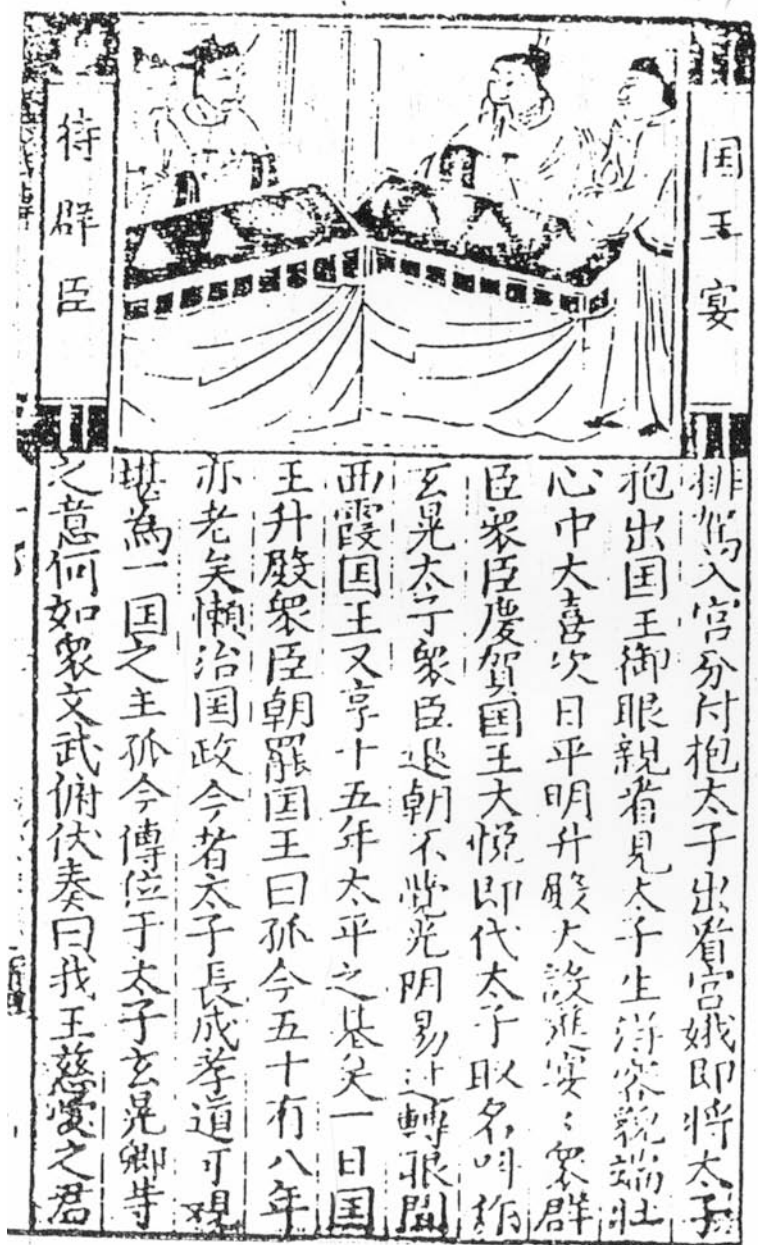 囯王宴
待群臣
排駕入宮分付抱太子出看宮娥即將太子
抱出囯王御眼親看見太子生得容貌端壯
心中大喜次日平明升殿大設筵宴〻衆群
臣衆臣慶賀囯王大悅即代太子取名叫作
玄晃太子衆臣退朝不覺光陰易过轉眼間
西霞囯王又享十五年太平之基矣一日囯
王升殿衆臣朝罷囯王曰孤今五十有八年
亦老矣懶治囯政今者太子長成孝道可觀
堪為一囯之主孤今傳位于太子玄晃卿等
之意何如衆文武俯伏奏曰我王慈愛之君